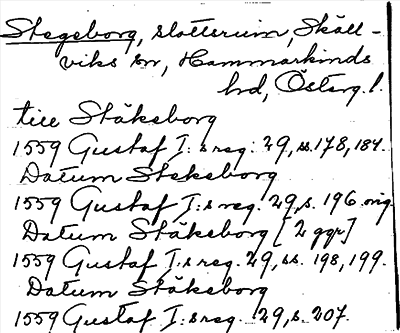 Stegeborg, slottsruin, Skäll-
viks sn, Hammarkinds
hd, Österg. l.
till Stäkeborg
1559 Gustaf I:s reg. 29, ss. 178, 184.
Datum Stekeborg
1559 Gustaf I:s reg. 29, s. 196. orig
Datum Stäkeborg [2 ggr]
1559 Gustaf I:s reg. 29, ss. 198, 199.
Datum Stäkeborg
1559 Gustaf I:s reg. 29, s. 207.